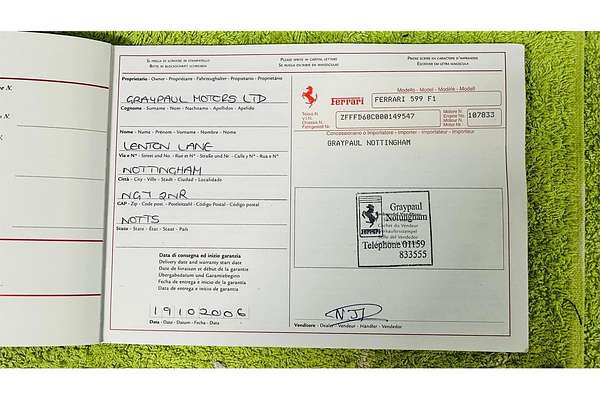 SI PREGA DI SCRIVERE IN STAMPATELLO
BITTE IN BLOCKSCHRIFT SCHREIBEN
PLEASE WRITE IN CAPITAL LETTERS
SE RUEGA ESCRIBIR EN MAYUSCULAS
PRIÈRE ÉCRIRE EN CARACTÈRE D'IMPRIMERIE
ESCREVER EM LETRA MAIUSCULA
Proprietario - Owner - Propriétaire - Fahrzeughalter - Propietario - Proprietário
GRAYPAUL MOTORS LTD
Cognome - Surname - Nom - Nachnamen - Apellidos - Apelido
Nome - Name - Prénom - Vorname - Nombre - Nome
LENTON LANE
Via e N° - Street und No. - Rue et N° - Straße und Nr - Calle y N° - Rua e N°
NOTTINGHAM
Città - City - Ville - Stadt - Ciudad - Localidade
NG7 2NR
CAP - Zip - Code post. - Postleitzahl - Código Postal - Código postal
NOTTS
Stato - State - État - Staat - País
Data di consegna ed inizio garanzia
Delivery date and warranty start date
Date de livraison et début de la garantie
Übergabedatum und Garantiebeginn
Fecha de entrega e inicio de la garantía
Data de entrega e inicio da garantia
19102006
Data - Date - Datum - Fecha - Data
Ferrari
Modello - Model - Modèle - Modell
FERRARI 599 F1
Telaio N.
V.I.N.
Chassis N.
Fahrgestell Nr.
ZFFFD60C000149547
Motore N.
Engine No.
Moteur N.
Motor Nr.
107833
Concessionario o Importatore - Importer - Importateur - Importeur
GRAYPAUL NOTTINGHAM
Graypaul
Nottingham
Ferrari
Telephone 01159
833555
NJP
Venditore - Dealer - Vendeur - Händler - Vendedor